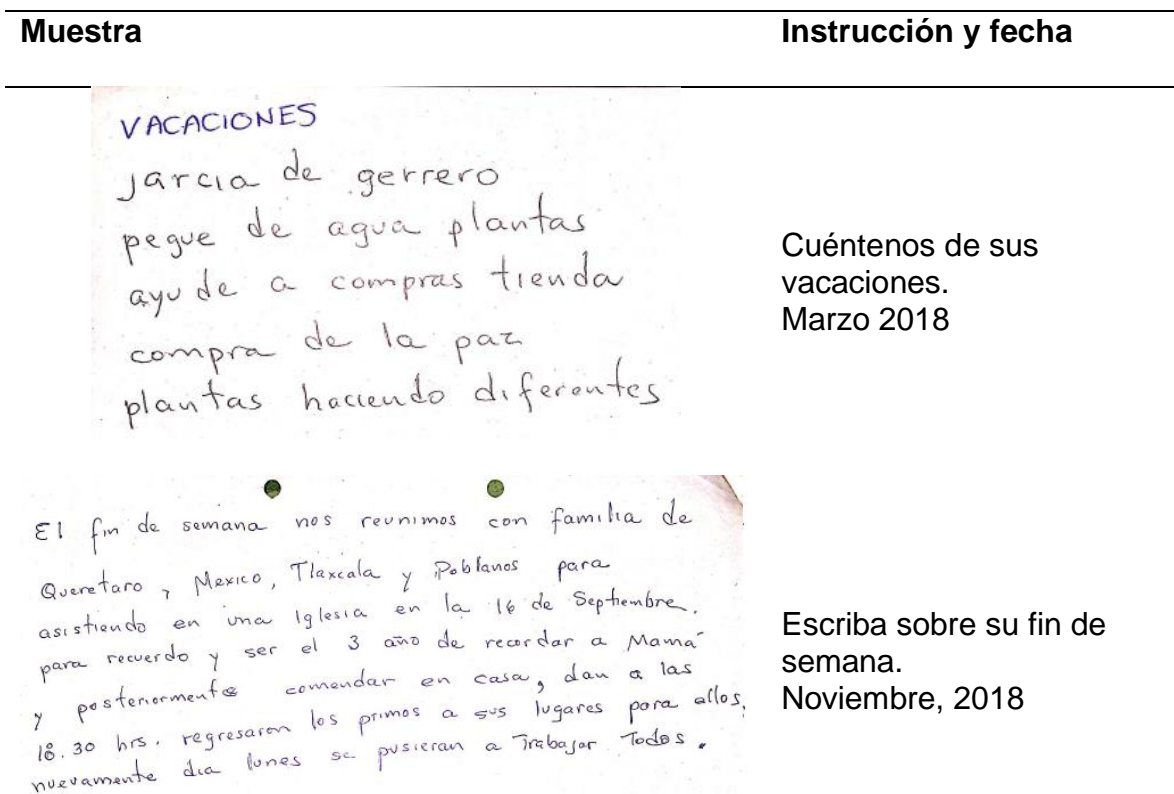 Muestra Instrucción y fecha
VACACIONES
jarcia de gerrero
pegue de agua plantas
ayude a compras tienda
compra de la paz
plantas haciendo diferentes
Cuéntenos de sus
vacaciones.
Marzo 2018
El fin de semana nos reunimos con familia de
Queretaro, Mexico, Tlaxcala y Poblanos para
asistiendo en una Iglesia en la 16 de Septiembre.
para recuerdo y ser el 3 año de recordar a Mamá
y posteriormente comendar en casa, dan a las
18.30 hrs. regresaron los primos a sus lugares para allos,
nuevamente dia lunes se pusieran a Trabajar Todos.
Escriba sobre su fin de
semana.
Noviembre, 2018